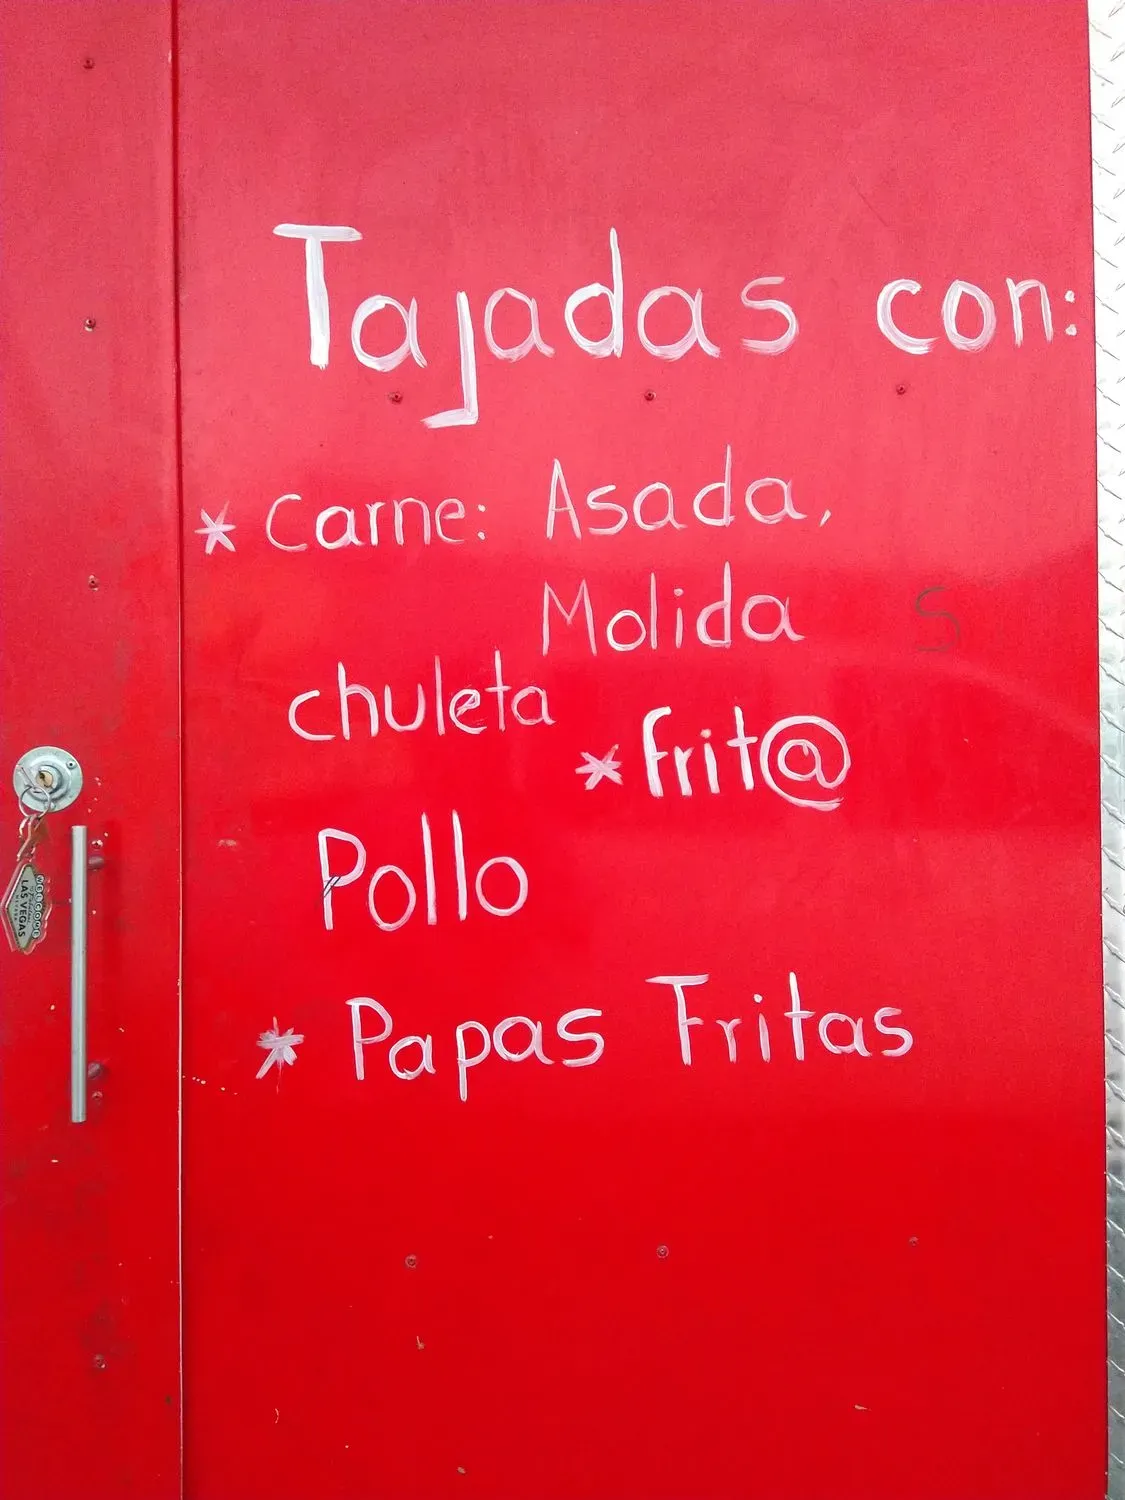 Tajadas con:
* Carne: Asada,
Molida
S
chuleta
* Frit@
Pollo
* Papas Fritas
WELCOME
TO Fabulous
LAS VEGAS
NEVADA